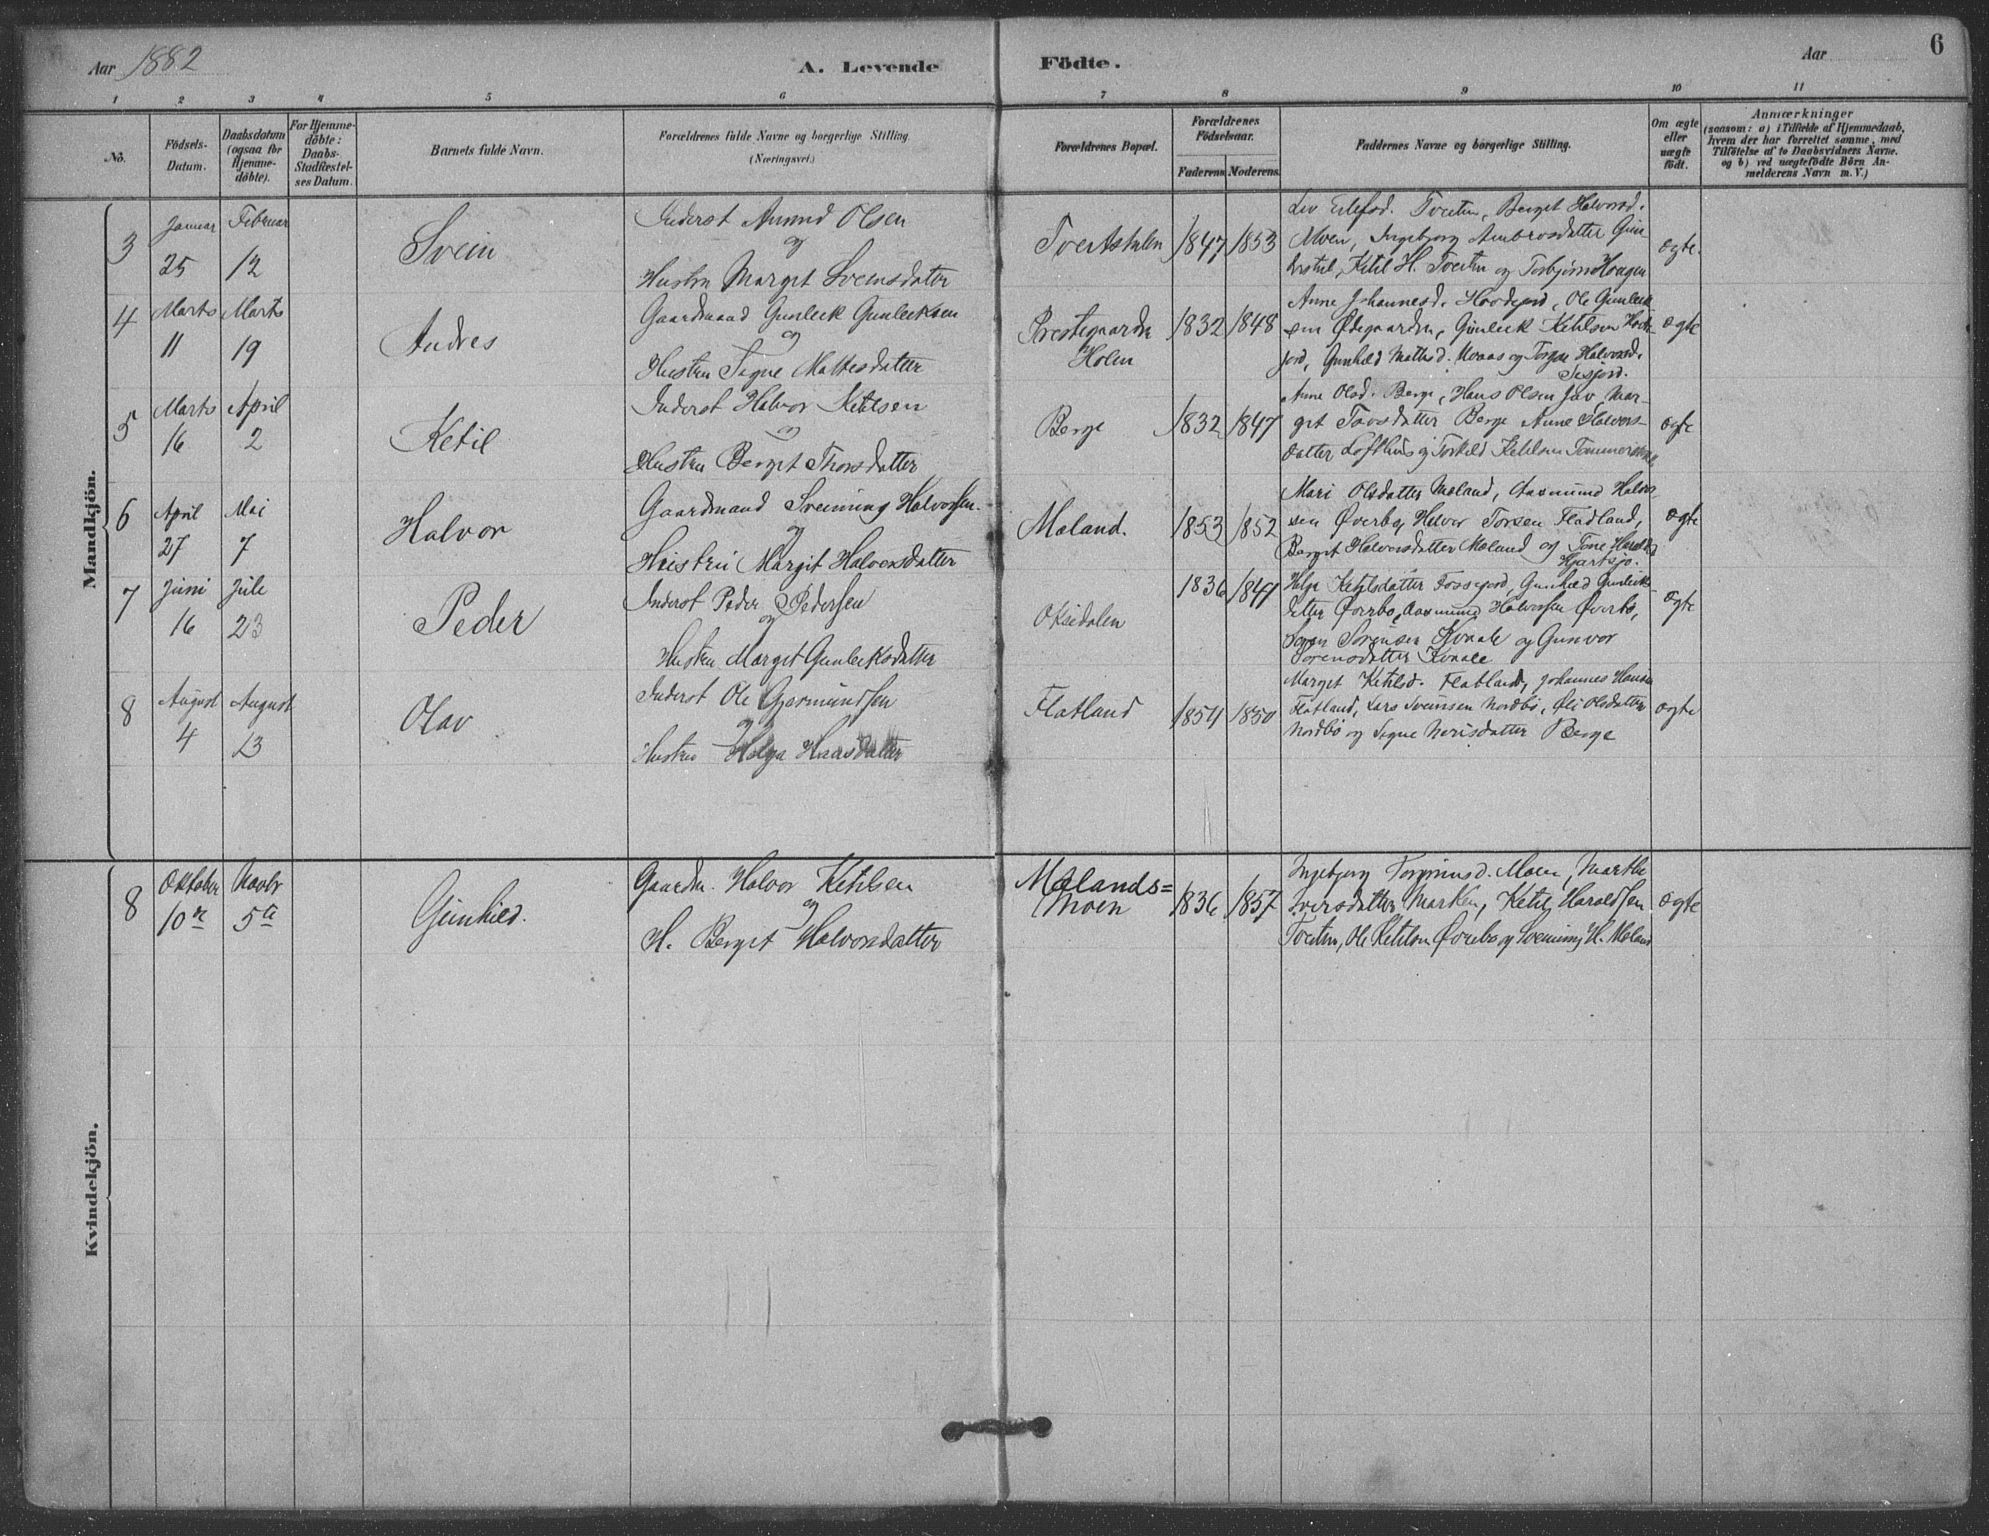 Aar 1882
A. Levende
Födte.
Aar
6
1 2 3 4 5 6 7 8 9 10 11
No.
Födsels-
Datum.
Daabsdatum
(ogsaa for
Hjemme-
döbte).
For Hjemme-
döbte:
Daabs-
Stadfæstel-
ses Datum.
Barnets fulde Navn.
Forældrenes fulde Navne og borgerlige Stilling.
(Næringsvei.)
Forældrenes Bopæl.
Forældrenes
Födselsaar.
Faderens. Moderens.
Faddernes Navne og borgerlige Stilling.
Om ægte
eller
uægte
födt.
Anmærkninger
(saasom: a) i Tilfælde af Hjemmedaab,
hvem der har forrettet samme, med
Tilföielse af to Daabsvidners Navne.
og b) ved uægtefödte Börn An-
melderens Navn m. V.)
Mandkjön.
3
Januar Februar
25 12
Svein
Inderst Amund Olsen
og
Hustru Marget Sveinsdatter
1847 1853
Liv Eilefsd. Tveiten, Berget Halvorsd.
Moen, Ingebjorg Ambrosdatter Gun-
Ketil H. Tveiten og Torbjørn Haagen
ægte.
4
Marts Marts
11 19
Andres
Gaardmand Gunleek Gunleeksen
og
Hustru Signe Mattesdatter
Prestegaarden
Holen
1832 1848
Anne Johannesd. Hovdejord, Ole Gunleek
sen Ødegaarden, Gunleek Ketilsen Hovde-
jord, Gunhild Mathisd. Moaas og Torgne Halvorsd.
ægte
5
Marts April
16 2
Ketil
Inderst Halvor Ketilsen
og
Hustru Berget Thorsdatter
Berge
1832 1847
Anne Olsd. Berge, Hans Olsen Jav, Mar-
get Tovsdatter Berge Anne Halvors-
datter Lofthus og Torkild Ketilsen
ægte
6
April Mai
27 7
Halvor
Gaardmand Svenning Halvorsen
og
Hustru Margit Halvorsdatter
Moland.
1853 1852
Mari Olsdatter Moland, Aasmund Halvor-
sen Øverbø, Halvor Torsen Fladland,
Berget Halvorsdatter Moland og Tone Harald
Hjartsjø.
ægte
7
Juni Jule
16 23
Peder
Inderst Peder Pedersen
og
Hustru Marget Gunleeksdatter
Oksedalen
1836 1841
Helge Ketilsdatter Fossejord, Gunhild Gunleeks-
datter Øverbø, Aasmund Halvorsen Øverbø,
Søren Sørensen Kvaale og Gunvor
Sørensdatter Kvaale
ægte
8
August August
4 13
Olav
Inderst Ole Gjermundsen
og
Hustru Helga Hansdatter
Flatland
1854 1850
Marget Ketilsd. Flatland, Johannes Hansen
Flatland, Lars Sveinsen Nordbø, Øli Olsdatter
Nordbø og Signe Nerisdatter Berge
ægte
Kvindekjön.
8
Oktober Novbr
10de 5te
Gunhild.
Gaardm. Halvor Ketilsen
og
H. Berget Halvorsdatter
Molands=
Moen
1836 1857
Ingebjorg Torgrimsd. Moen, Marthe
Iversdatter Marken, Ketil Haraldsen
Tveiten, Ole Ketilsen Øverbø og Svenning H. Moland
ægte